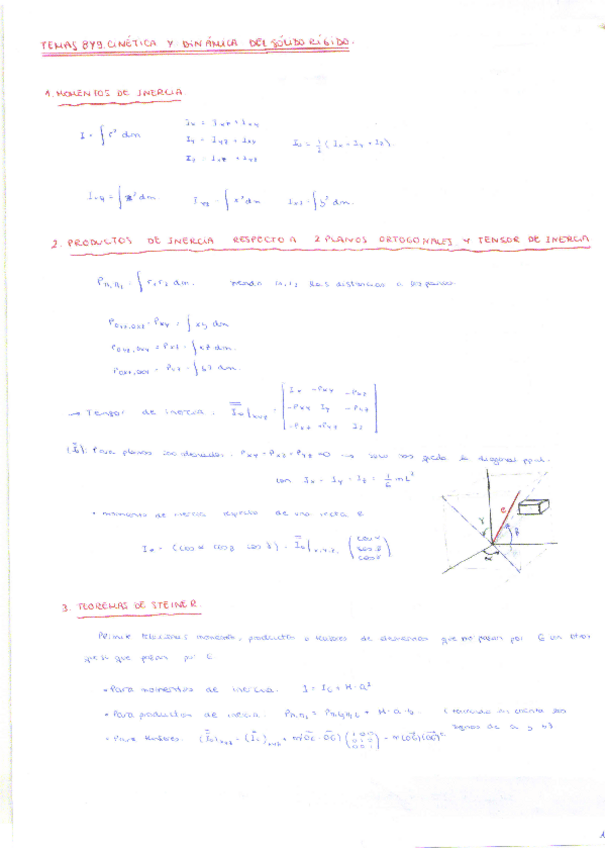 TEMAS 8Y9. CINÉTICA Y DINÁMICA DEL SÓLIDO RÍGIDO.
1. MOMENTOS DE INERCIA
I = ∫ r² dm
Ix = Ixz + Ixy
Iy = Iyz + Ixy
Iz = Ixz + Iyz
Io = 1/2 (Ix + Iy + Iz).
Ixy = ∫ z² dm
Iyz = ∫ x² dm
Ixz = ∫ y² dm.
2. PRODUCTOS DE INERCIA RESPECTO A 2 PLANOS ORTOGONALES Y TENSOR DE INERCIA
= ∫ r₁ r₂ dm. siendo r₁, r₂ las distancias a
= Pxy = ∫ xy dm
= Pxz = ∫ xz dm.
= Pyz = ∫ yz dm.
→ Tensor de inercia:
Ix -Pxy -Pxz
-Pxy Iy -Pyz
-Pxz -Pyz Iz
Para planos coordenados. Pxy = Pxz = Pyz = 0 → solo nos queda la diagonal ppal.
con Ix = Iy = Iz = 1/6 mL²
• momentos de inercia respecto de una recta e
Ie = (cos α cos β cos γ) ·
cos α
cos β
cos γ
γ e β
α
3. TEOREMAS DE STEINER.
momentos, productos o tensores de elementos que no pasan por G con otros
que sí que pasan por G
• Para momentos de inercia. I = IG + M·a²
• Para productos de inercia. + M·a·b. (teniendo en cuenta los
signos de a y b)
• Para tensores.
1